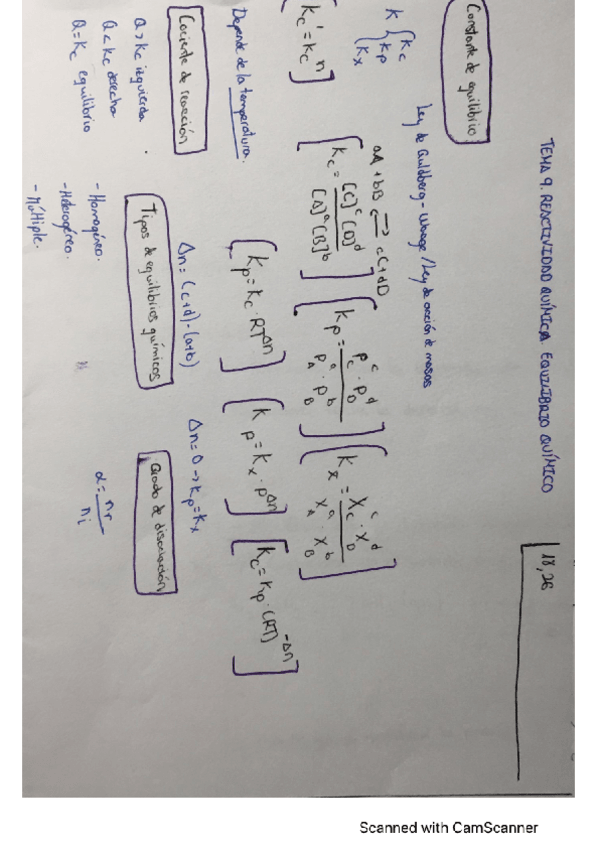 TEMA 9. REACTIVIDAD QUÍMICA EQUILIBRIO QUÍMICO
18, 26
Constante de equilibrio
Ley de Guldberg - Waage / Ley de acción de masas
K { Kc Kp Kx
aA + bB ⇌ cC + dD
[Kc' = Kc^n]
[Kc = [C]^c [D]^d / [A]^a [B]^b]
[Kp = P_C^c · P_D^d / P_A^a · P_B^b]
[Kx = X_C^c · X_D^d / X_A^a · X_B^b]
Depende de la temperatura.
[Kp = Kc · RT^Δn]
[Kp = Kx · P^Δn]
[Kc = Kp · (RT)^-Δn]
Δn = (c+d) - (a+b)
Δn = 0 → Kp = Kx
Cociente de reacción
Q > Kc izquierda
Q < Kc derecha
Q = Kc equilibrio
Tipos de equilibrios químicos
- Homogéneo.
- Heterogéneo.
- Múltiple.
Grado de disociación
α = nr / ni
Scanned with CamScanner